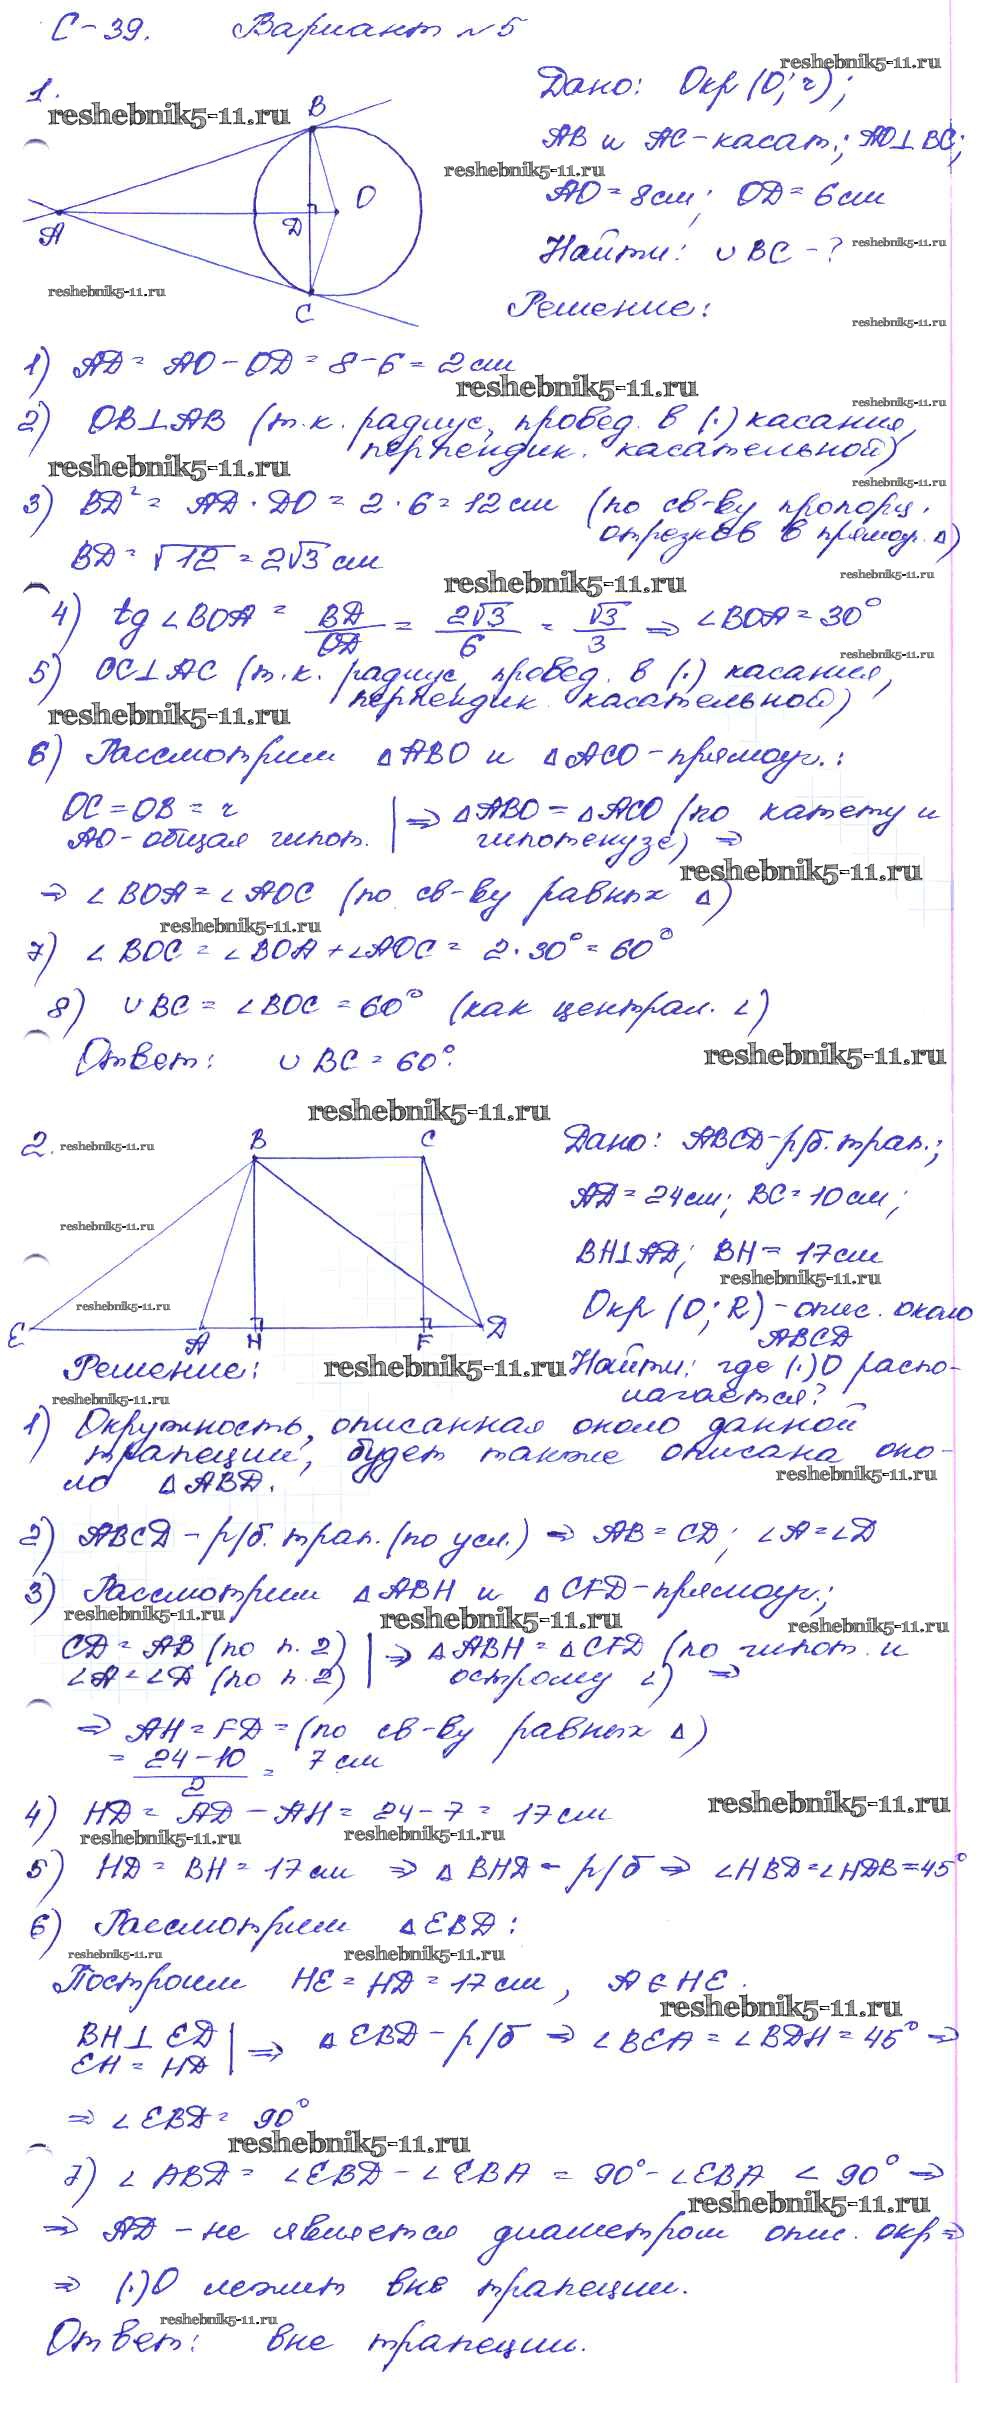 С-39. Вариант №5
reshebnik5-11.ru
1.
reshebnik5-11.ru
B
O
D
A
C
reshebnik5-11.ru
Дано: Окр (O; r);
AB и AC - касат.; AO⊥BC;
reshebnik5-11.ru
AO = 8см; OD = 6см
Найти: ∪BC - ?
reshebnik5-11.ru
Решение:
reshebnik5-11.ru
1) AD = AO - OD = 8 - 6 = 2см
reshebnik5-11.ru
reshebnik5-11.ru
2) OB⊥AB (т.к. радиус, провед. в (·) касания,
перпендик. касательной)
reshebnik5-11.ru
reshebnik5-11.ru
3) BD² = AD · DO = 2 · 6 = 12см (по св-ву пропорц.
отрезков в прямоуг. △)
BD = √12 = 2√3 см
reshebnik5-11.ru
reshebnik5-11.ru
4) tg ∠BOA = BD/OD = 2√3/6 = √3/3 ⇒ ∠BOA = 30°
reshebnik5-11.ru
5) OC⊥AC (т.к. радиус, провед. в (·) касания,
перпендик. касательной)
reshebnik5-11.ru
6) Рассмотрим △ABO и △ACO - прямоуг.:
OC = OB = r | ⇒ △ABO = △ACO (по катету и
AO - общая гипот. | гипотенузе) ⇒
reshebnik5-11.ru
⇒ ∠BOA = ∠AOC (по св-ву равных △)
reshebnik5-11.ru
7) ∠BOC = ∠BOA + ∠AOC = 2 · 30° = 60°
8) ∪BC = ∠BOC = 60° (как централ. ∠)
Ответ: ∪BC = 60°.
reshebnik5-11.ru
reshebnik5-11.ru
2.
reshebnik5-11.ru
B C
reshebnik5-11.ru
reshebnik5-11.ru
E A H F D
Дано: ABCD - р/б. трап.;
AD = 24см; BC = 10см;
BH⊥AD; BH = 17см
reshebnik5-11.ru
Окр (O; R) - опис. около
ABCD
Найти: где (·)O распо-
лагается?
Решение:
reshebnik5-11.ru
reshebnik5-11.ru
1) Окружность, описанная около данной
трапеции, будет также описана око-
ло △ABD.
reshebnik5-11.ru
2) ABCD - р/б. трап. (по усл.) ⇒ AB = CD; ∠A = ∠D
3) Рассмотрим △ABH и △CFD - прямоуг.;
reshebnik5-11.ru
reshebnik5-11.ru
reshebnik5-11.ru
CD = AB (по п. 2) | ⇒ △ABH = △CFD (по гипот. и
∠A = ∠D (по п. 2) | острому ∠) ⇒
⇒ AH = FD = (по св-ву равных △)
= 24 - 10/2 = 7 см
reshebnik5-11.ru
4) HD = AD - AH = 24 - 7 = 17см
reshebnik5-11.ru
reshebnik5-11.ru
5) HD = BH = 17см ⇒ △BHD - р/б ⇒ ∠HBD = ∠HDB = 45°
6) Рассмотрим △EBD:
reshebnik5-11.ru
reshebnik5-11.ru
Построим HE = HD = 17см, A ∈ HE.
reshebnik5-11.ru
BH⊥ED | ⇒ △EBD - р/б ⇒ ∠BEA = ∠BDH = 45° ⇒
EH = HD |
⇒ ∠EBD = 90°
reshebnik5-11.ru
7) ∠ABD = ∠EBD - ∠EBA = 90° - ∠EBA < 90° ⇒
reshebnik5-11.ru
⇒ AD - не является диаметром опис. окр ⇒
⇒ (·)O лежит вне трапеции.
reshebnik5-11.ru
Ответ: вне трапеции.